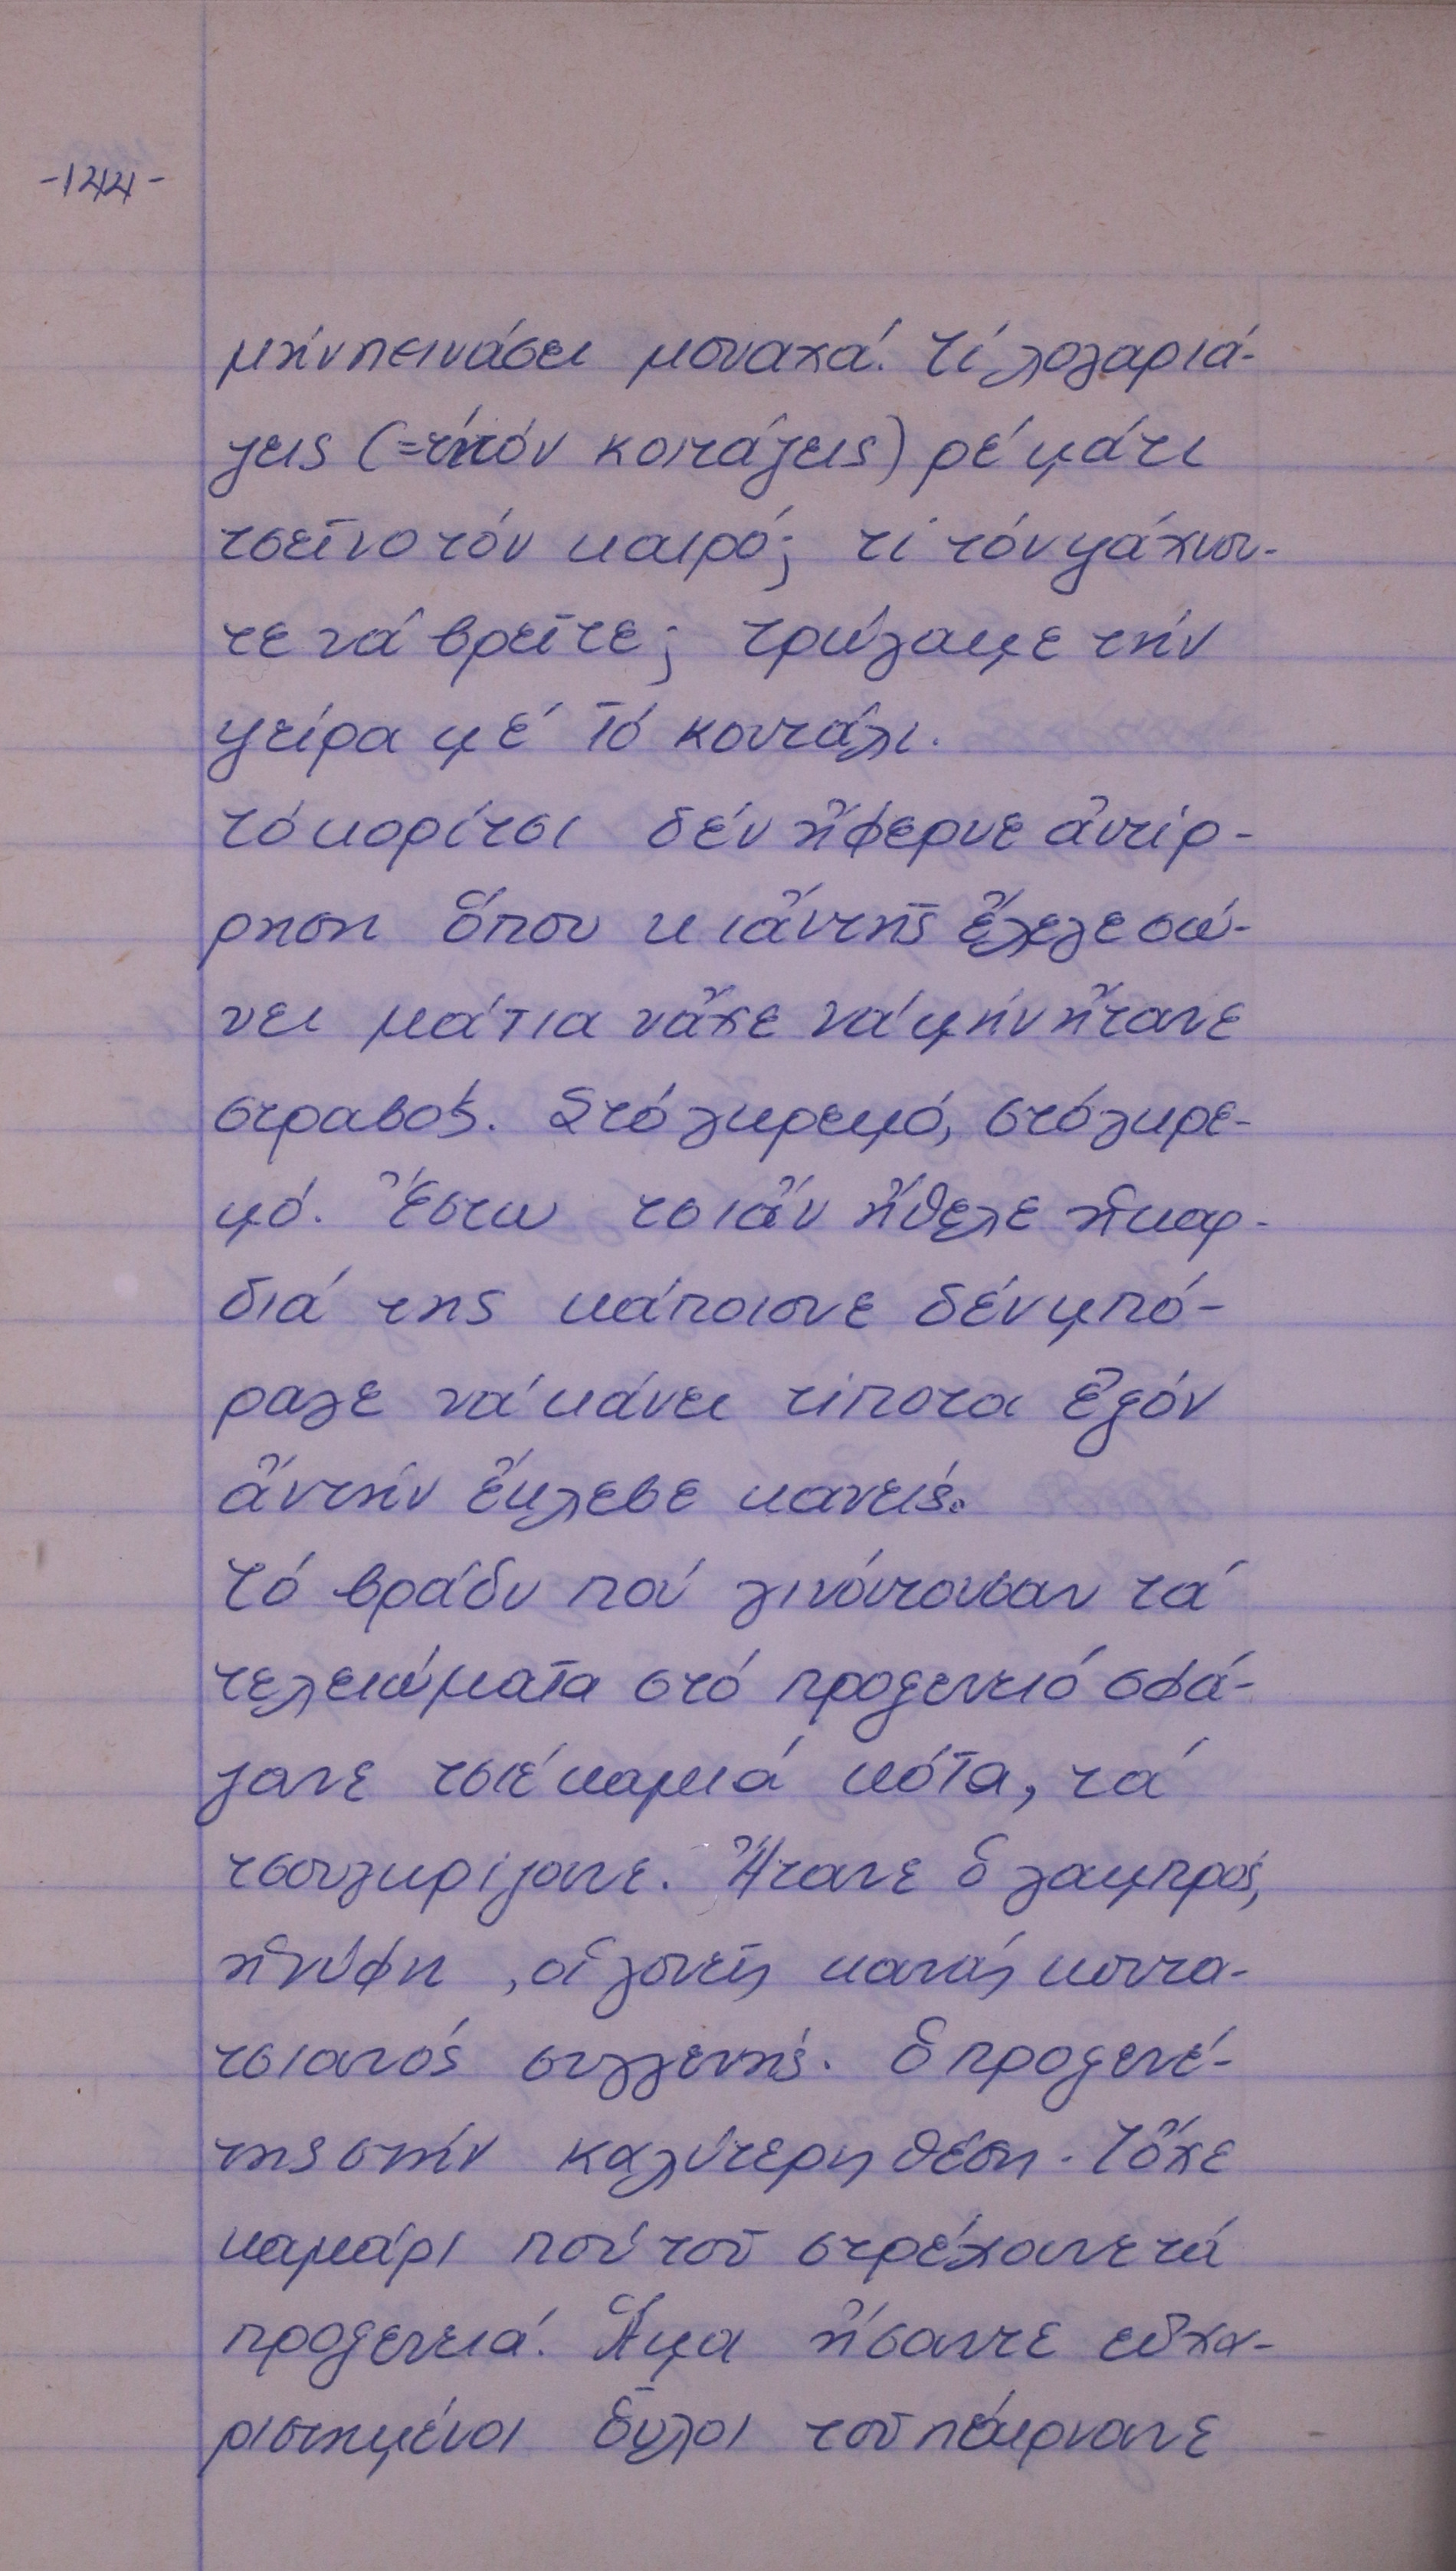 -144-
μήν πεινάσει μοναχά. Τί λογαριά-
ζεις (=τί τόν κοιτάζεις) ρέ μάτι
τσεῖνο τόν καιρό; τί τόν ψάχνου-
τε νά βρεῖτε; τρώγαμε τήν
ψείρα μέ τό κουτάλι.
Τό κορίτσι δέν ἤφερνε ἀντίρ-
ρηση ὅπου κι ἄν τῆς ἔλεγε σώ-
νει μάτια νἄχε νά μήν ἤτανε
στραβός. Στό γκρεμό, στό γκρε-
μό. Ἔστω τσι ἄν ἤθελε ἡ καρ-
διά της κάποιονε δέν μπό-
ραγε νά κάνει τίποτα ἐξόν
ἄν τήν ἔκλεβε κανείς.
Τό βράδυ πού γινόντουσαν τά
τελειώματα στό προξενειό σφά-
ζανε τσιέ καμιά κότα, τά
τσουγκρίζανε. Ἤτανε ὁ γαμπρός,
ἡ νύφη, οἱ γονεῖς κανάς κοντα-
τσιανός συγγενής. Ὁ προξενέ-
της στήν καλύτερη θέση. Τὄχε
καμάρι πού τοῦ στρέχανε τά
προξενειά. Ἅμα ἤσαντε εὐχα-
ριστημένοι ὅλοι τοῦ παίρνανε